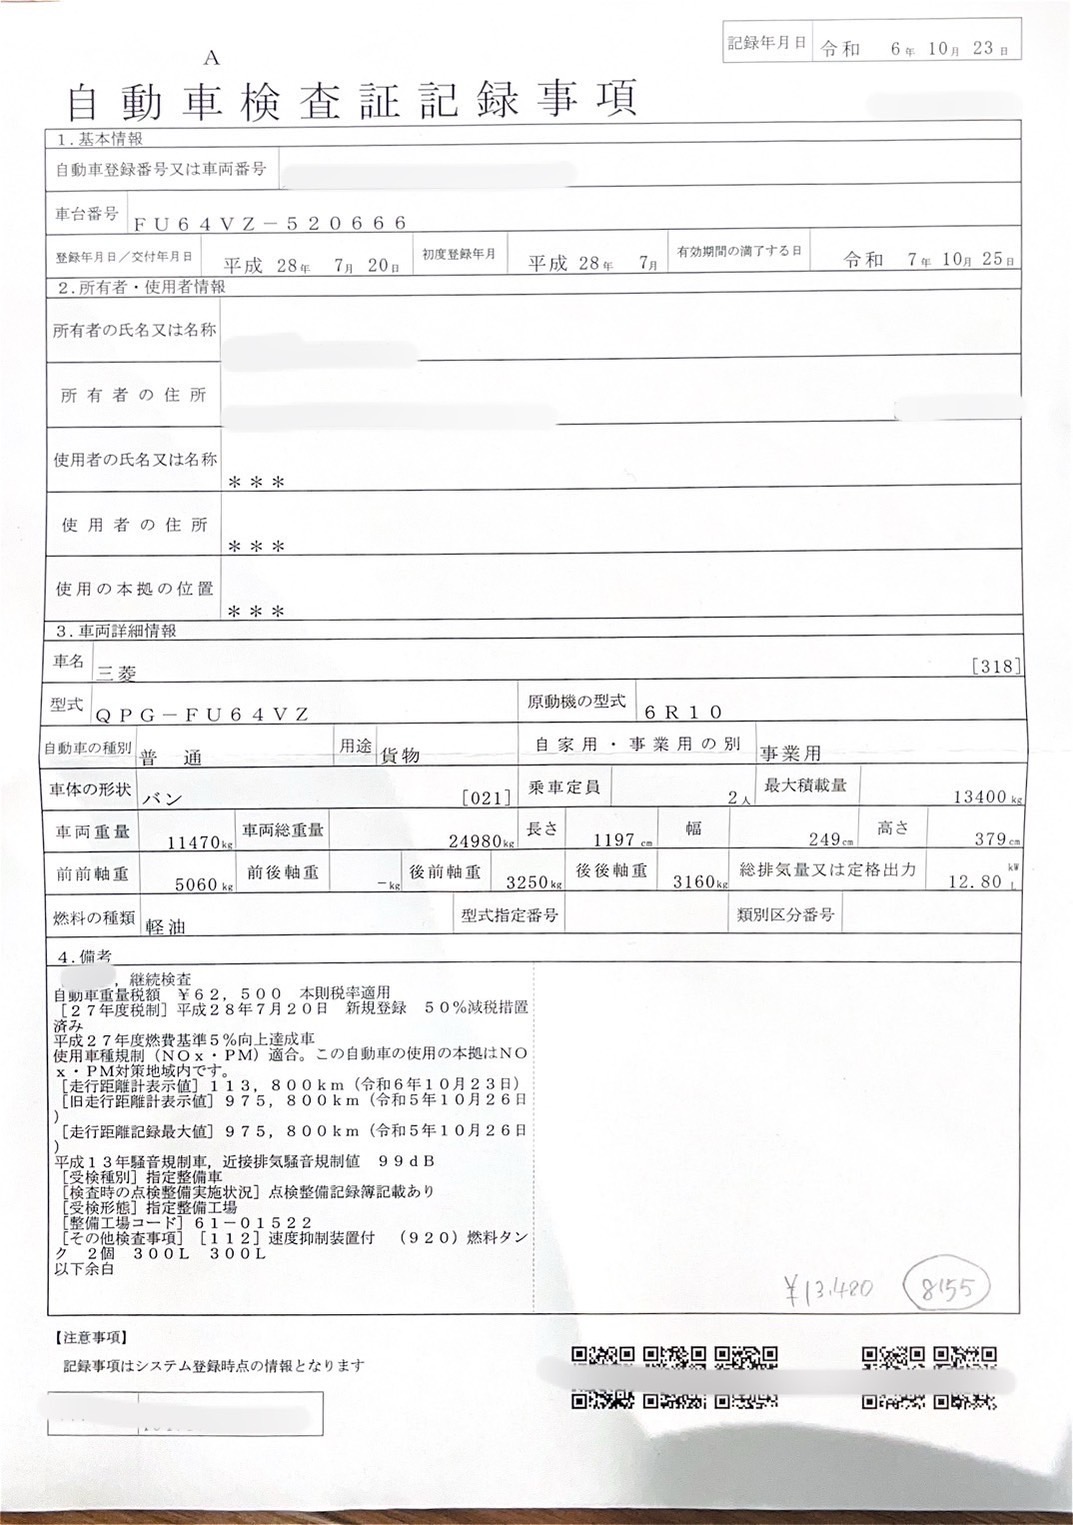 記録年月日 令和 6年 10月 23日
A
自動車検査証記録事項
1.基本情報
自動車登録番号又は車両番号
車台番号 FU64VZ-520666
登録年月日/交付年月日 平成 28年 7月 20日 初度登録年月 平成 28年 7月 有効期間の満了する日 令和 7年 10月 25日
2.所有者・使用者情報
所有者の氏名又は名称
所有者の住所
使用者の氏名又は名称 ***
使用者の住所 ***
使用の本拠の位置 ***
3.車両詳細情報
車名 三菱 [318]
型式 QPG-FU64VZ 原動機の型式 6R10
自動車の種別 普通 用途 貨物 自家用・事業用の別 事業用
車体の形状 バン [021] 乗車定員 2人 最大積載量 13400kg
車両重量 11470kg 車両総重量 24980kg 長さ 1197cm 幅 249cm 高さ 379cm
前前軸重 5060kg 前後軸重 -kg 後前軸重 3250kg 後後軸重 3160kg 総排気量又は定格出力 12.80 kW L
燃料の種類 軽油 型式指定番号 類別区分番号
4.備考
,継続検査
自動車重量税額 ¥62,500 本則税率適用
[27年度税制]平成28年7月20日 新規登録 50%減税措置
済み
平成27年度燃費基準5%向上達成車
使用車種規制(NOx・PM)適合。この自動車の使用の本拠はNO
x・PM対策地域内です。
[走行距離計表示値]113,800km(令和6年10月23日)
[旧走行距離計表示値]975,800km(令和5年10月26日
)
[走行距離記録最大値]975,800km(令和5年10月26日
)
平成13年騒音規制車,近接排気騒音規制値 99dB
[受検種別]指定整備車
[検査時の点検整備実施状況]点検整備記録簿記載あり
[受検形態]指定整備工場
[整備工場コード]61-01522
[その他検査事項][112]速度抑制装置付 (920)燃料タン
ク 2個 300L 300L
以下余白
¥13,420 8155
【注意事項】
記録事項はシステム登録時点の情報となります